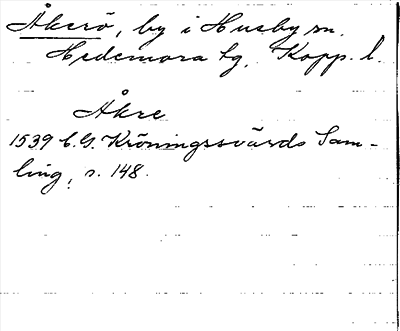 Åkerö, by i Husby sn.
Hedemora tg. Kopp. l.
Åkre
1539 C.G. Kröningssvärds Sam-
ling, s. 148.